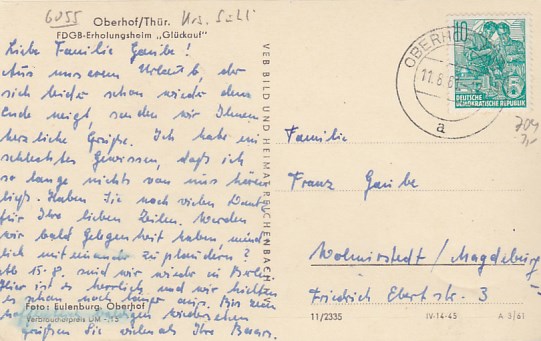 6055
Oberhof/Thür.
FDGB-Erholungsheim „Glückauf"
Liebe Familie Gaube!
Aus unserem Urlaub, der
sich leider schon wieder dem
Ende neigt, senden wir Ihnen
herzliche Grüße. Ich habe ein
schlechtes Gewissen, daß ich
so lange nichts von mir hören
ließ. Haben Sie noch vielen Dank
für Ihre lieben Zeilen. Werden
wir bald Gelegenheit haben, münd
lich miteinander zu plaudern?
Ab 15.8. sind wir wieder in Berlin
Hier ist es herrlich und wir hielten
es schon noch länger aus. Bis zum
Wiedersehen
grüßen Sie vielmals Ihre
Foto: Eulenburg, Oberhof
Verbraucherpreis DM -,15
VEB BILD UND HEIMAT REICHENBACH
OBERHOF
11.8.6
a
10
DEUTSCHE
DEMOKRATISCHE REPUBLIK
Familie
Franz Gaube
Wolmirstedt / Magdeburg
Friedrich Ebert str. 3
11/2335 IV-14-45 A 5/61